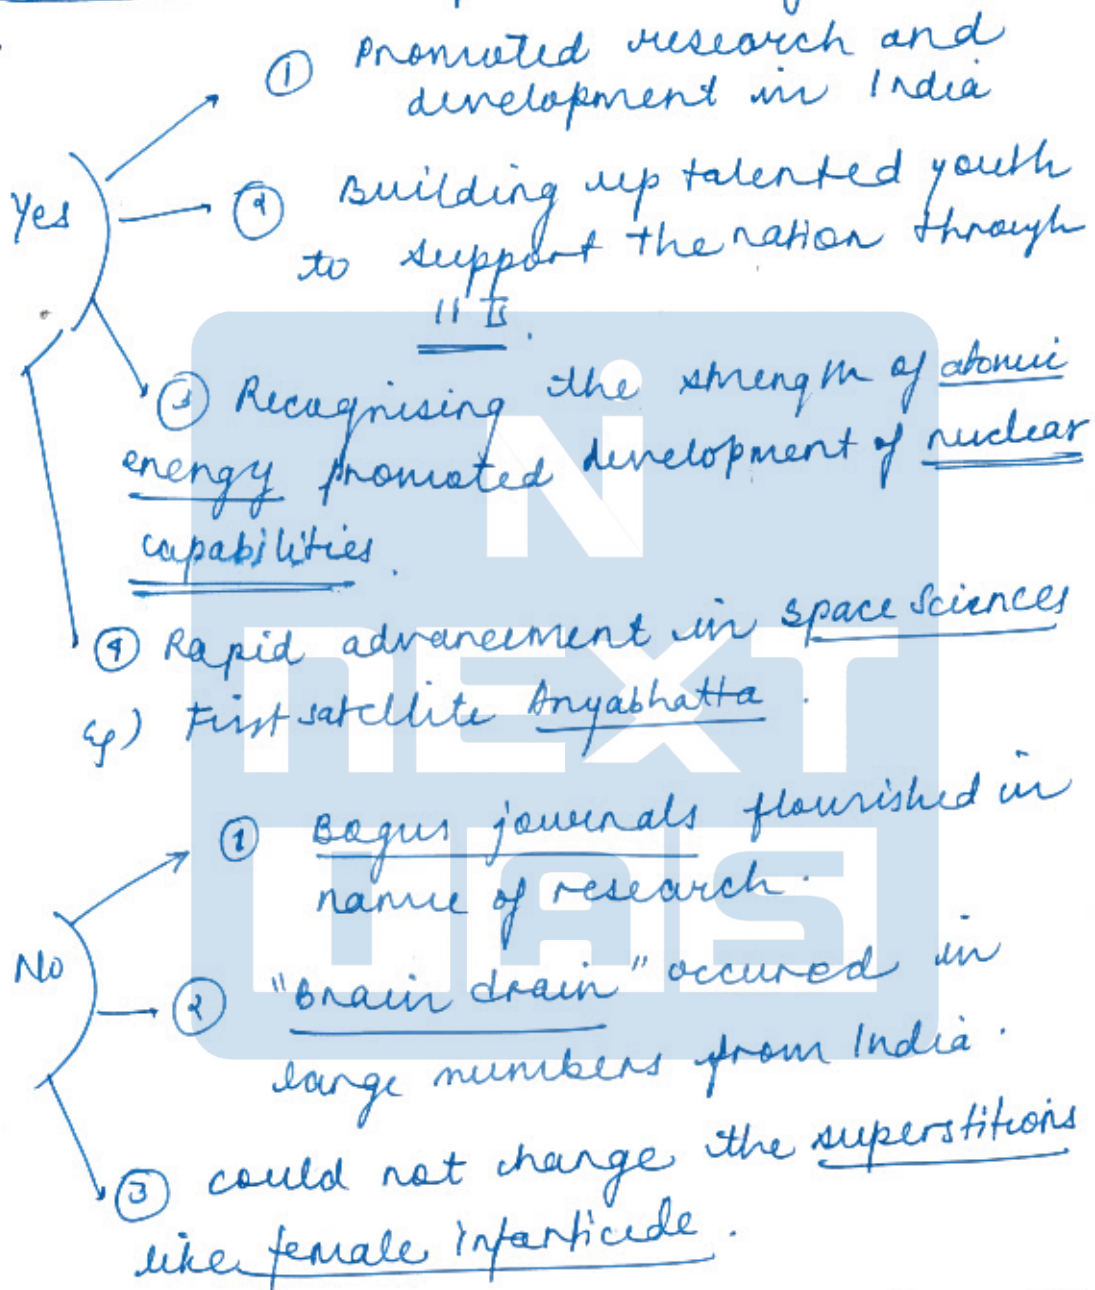 ① Promoted research and
development in India
Yes
② Building up talented youth
to support the nation through
IITs.
③ Recognising the strength of atomic
energy promoted development of nuclear
capabilities.
④ Rapid advancement in space sciences
eg) First satellite Aryabhatta.
① Bogus journals flourished in
name of research.
No
② "Brain drain" occured in
large numbers from India.
③ could not change the superstitions
like female infanticide.
NEXT
IAS